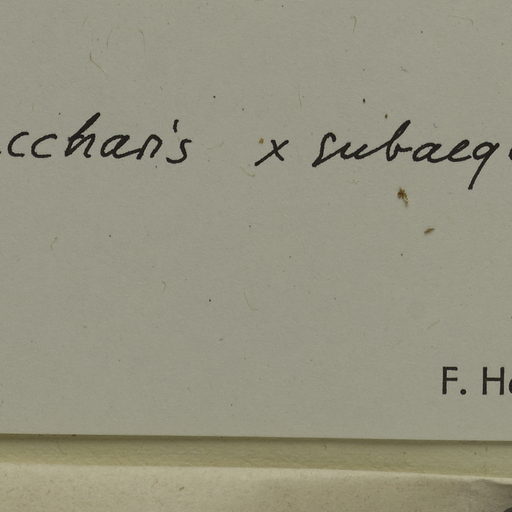 ccharis x subaeq
F. H